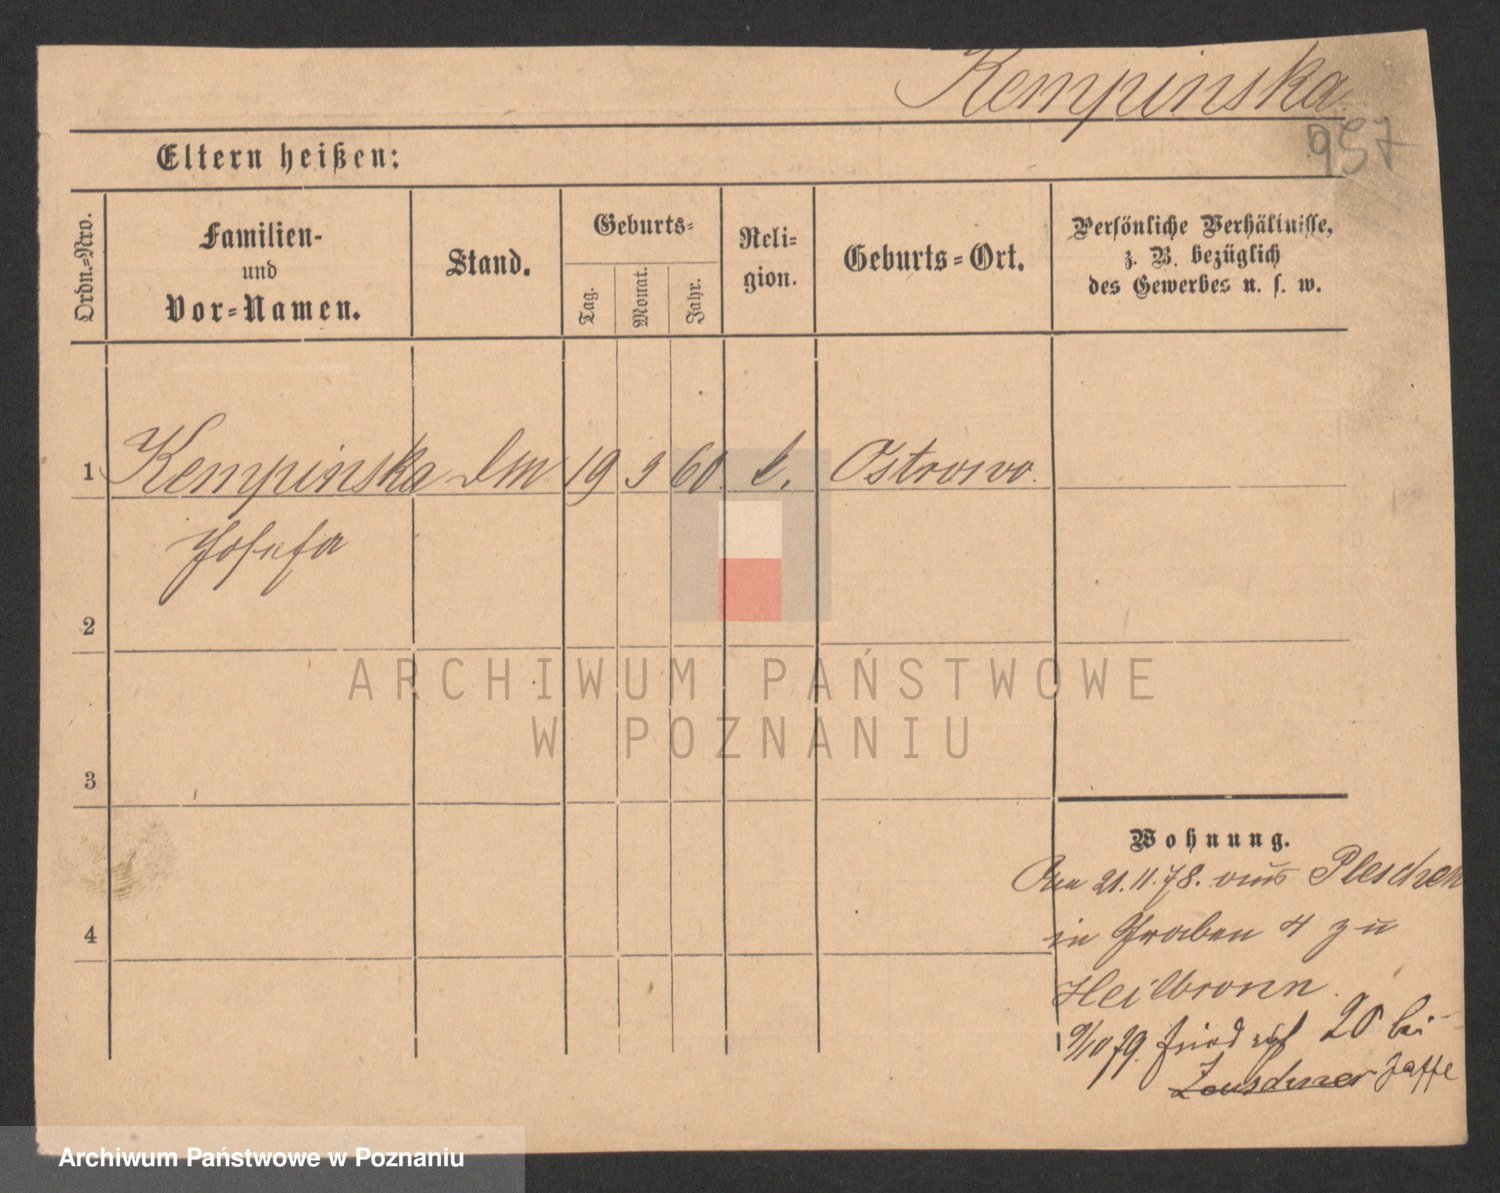 Kempinska
957
Eltern heißen:
Ordn.-Nro.
Familien-
und
Vor-Namen.
Stand.
Geburts-
Tag.
Monat.
Jahr.
Reli-
gion.
Geburts-Ort.
Persönliche Verhältnisse,
z. B. bezüglich
des Gewerbes u. s. w.
1 Kempinska 19 60 Ostrowo.
Josefa
2
ARCHIWUM PAŃSTWOWE
W POZNANIU
3
Wohnung.
21.11.78. aus Pleschen
in Graben 4 zu
4
Heilbronn.
9/10 79. 20 bei
Jaffe
Archiwum Państwowe w Poznaniu